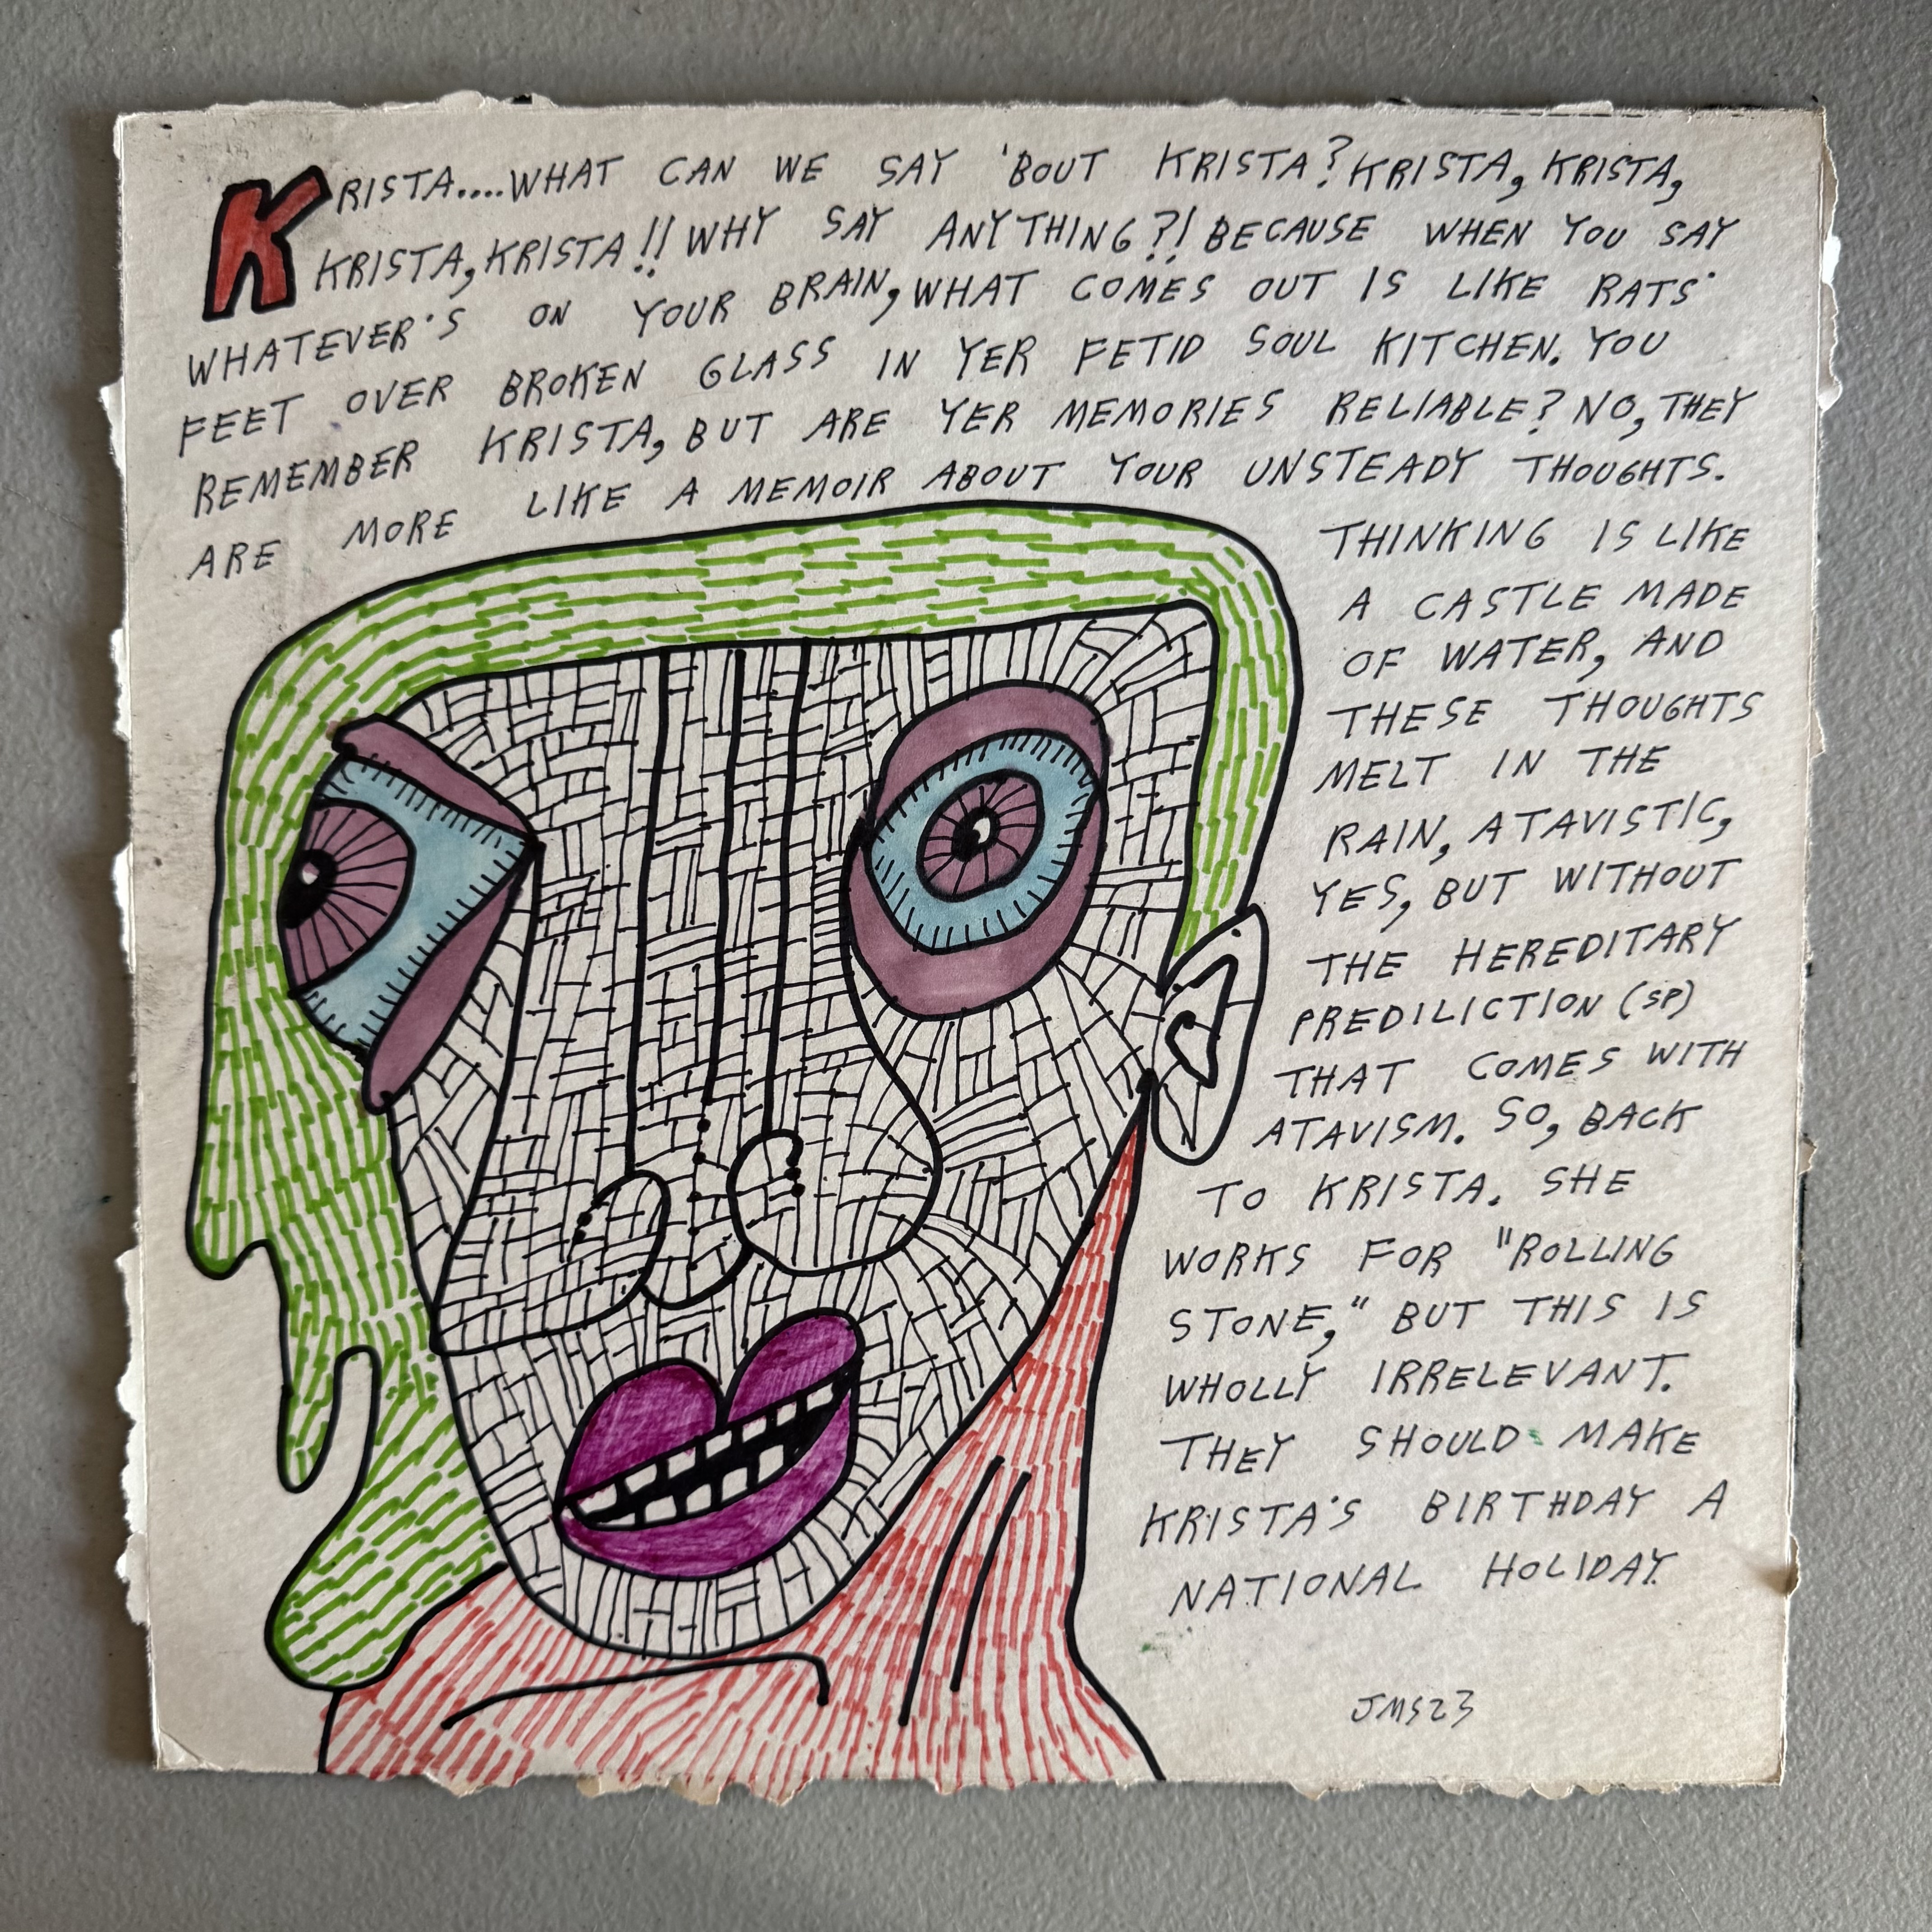 KRISTA....WHAT CAN WE SAY 'BOUT KRISTA? KRISTA, KRISTA,
KRISTA, KRISTA!! WHY SAY ANYTHING?! BECAUSE WHEN YOU SAY
WHATEVER'S ON YOUR BRAIN, WHAT COMES OUT IS LIKE RATS'
FEET OVER BROKEN GLASS IN YER FETID SOUL KITCHEN. YOU
REMEMBER KRISTA, BUT ARE YER MEMORIES RELIABLE? NO, THEY
ARE MORE LIKE A MEMOIR ABOUT YOUR UNSTEADY THOUGHTS.
THINKING IS LIKE
A CASTLE MADE
OF WATER, AND
THESE THOUGHTS
MELT IN THE
RAIN, ATAVISTIC,
YES, BUT WITHOUT
THE HEREDITARY
PREDILICTION (SP)
THAT COMES WITH
ATAVISM. SO, BACK
TO KRISTA. SHE
WORKS FOR "ROLLING
STONE," BUT THIS IS
WHOLLY IRRELEVANT.
THEY SHOULD MAKE
KRISTA'S BIRTHDAY A
NATIONAL HOLIDAY.
JMS23